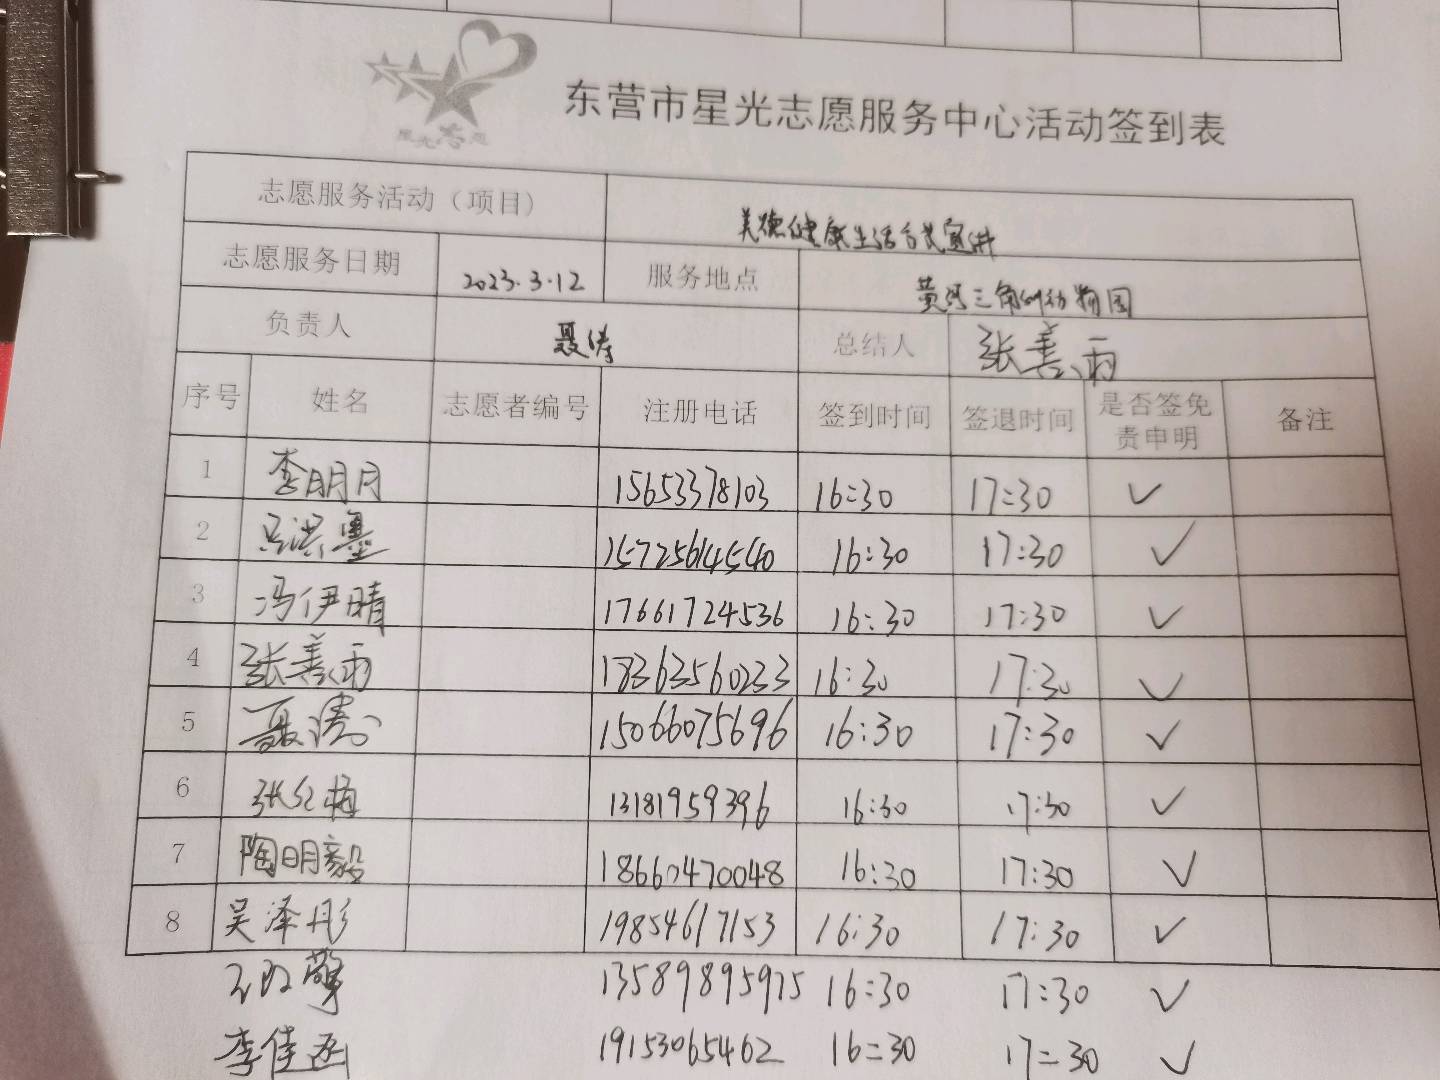 星光志愿
东营市星光志愿服务中心活动签到表
志愿服务活动（项目） 美德健康生活方式宣讲
志愿服务日期 2023.3.12 服务地点 黄河三角洲动物园
负责人 聂涛 总结人 张善雨
序号 姓名 志愿者编号 注册电话 签到时间 签退时间 是否签免责申明 备注
1 李明月 15653378103 16:30 17:30 ✓
2 马洪墨 15725614540 16:30 17:30 ✓
3 冯伊晴 17661724536 16:30 17:30 ✓
4 张善雨 18363560233 16:30 17:30 ✓
5 聂涛 15066075696 16:30 17:30 ✓
6 张红梅 13181959396 16:30 17:30 ✓
7 陶明毅 18660470048 16:30 17:30 ✓
8 吴泽彤 19854617153 16:30 17:30 ✓
13589895975 16:30 17:30 ✓
李佳函 19153065462 16:30 17:30 ✓